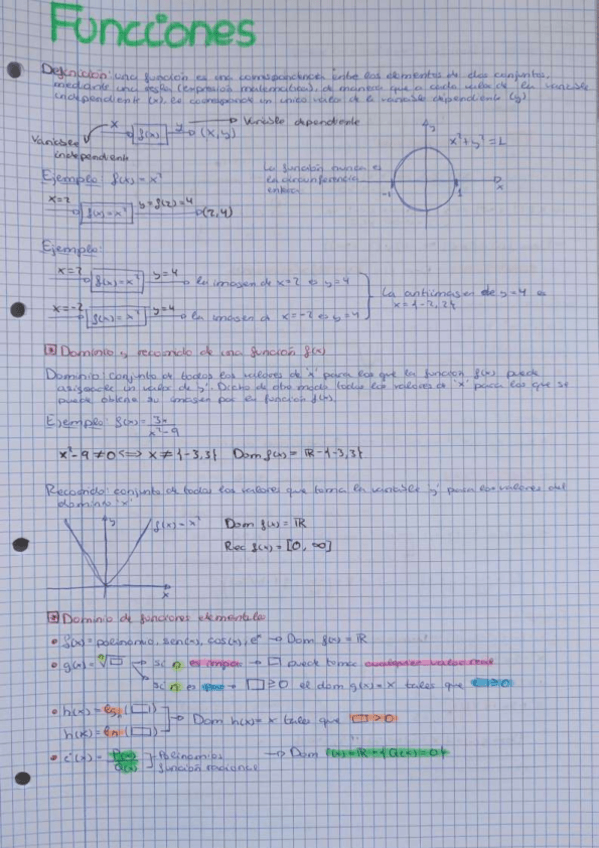 Funciones
Definición: una función es una correspondencia entre los elementos de dos conjuntos,
mediante una regla (expresión matemática), de manera que a cada valor de la variable
independiente (x), le corresponde un único valor de la variable dependiente (y)
x f(x) y (x,y) Variable dependiente
Variable
independiente
x²+y²=1
y
-1 1 x
La función nunca es
la circunferencia
entera
Ejemplo: f(x)=x²
x=2 f(x)=x² y=f(2)=4 (2,4)
Ejemplo:
x=2 f(x)=x² y=4 → la imagen de x=2 es y=4
x=-2 f(x)=x² y=4 → la imagen de x=-2 es y=4
La antiimagen de y=4 es
x={-2,2}
Dominio y recorrido de una función f(x)
Dominio: conjunto de todos los valores de 'x' para los que la función f(x) puede
un valor de 'y'. Dicho de otro modo todos los valores de 'x' para los que se
puede obtener su imagen por la función f(x).
Ejemplo: f(x)= 3x / x²-9
x²-9≠0 <=> x≠{-3,3} Dom f(x)=ℝ-{-3,3}
Recorrido: conjunto de todos los valores que toma la variable 'y' para los valores del
dominio 'x'
y f(x)=x² Dom f(x)=ℝ
x Rec f(x)=[0,∞]
Dominio de funciones elementales
• f(x)= polinomio, sen(x), cos(x), eˣ → Dom f(x)=ℝ
• g(x)= ⁿ√□ si n es impar → □ puede tomar cualquier valor real
si n es par → □≥0 el dom g(x)=x tales que □≥0
• h(x)=logₐ(□)
h(x)=ln(□) Dom h(x)=x tales que □>0
• i(x)= P(x) / Q(x) Polinomios
función racional → Dom i(x)=ℝ-{Q(x)=0}